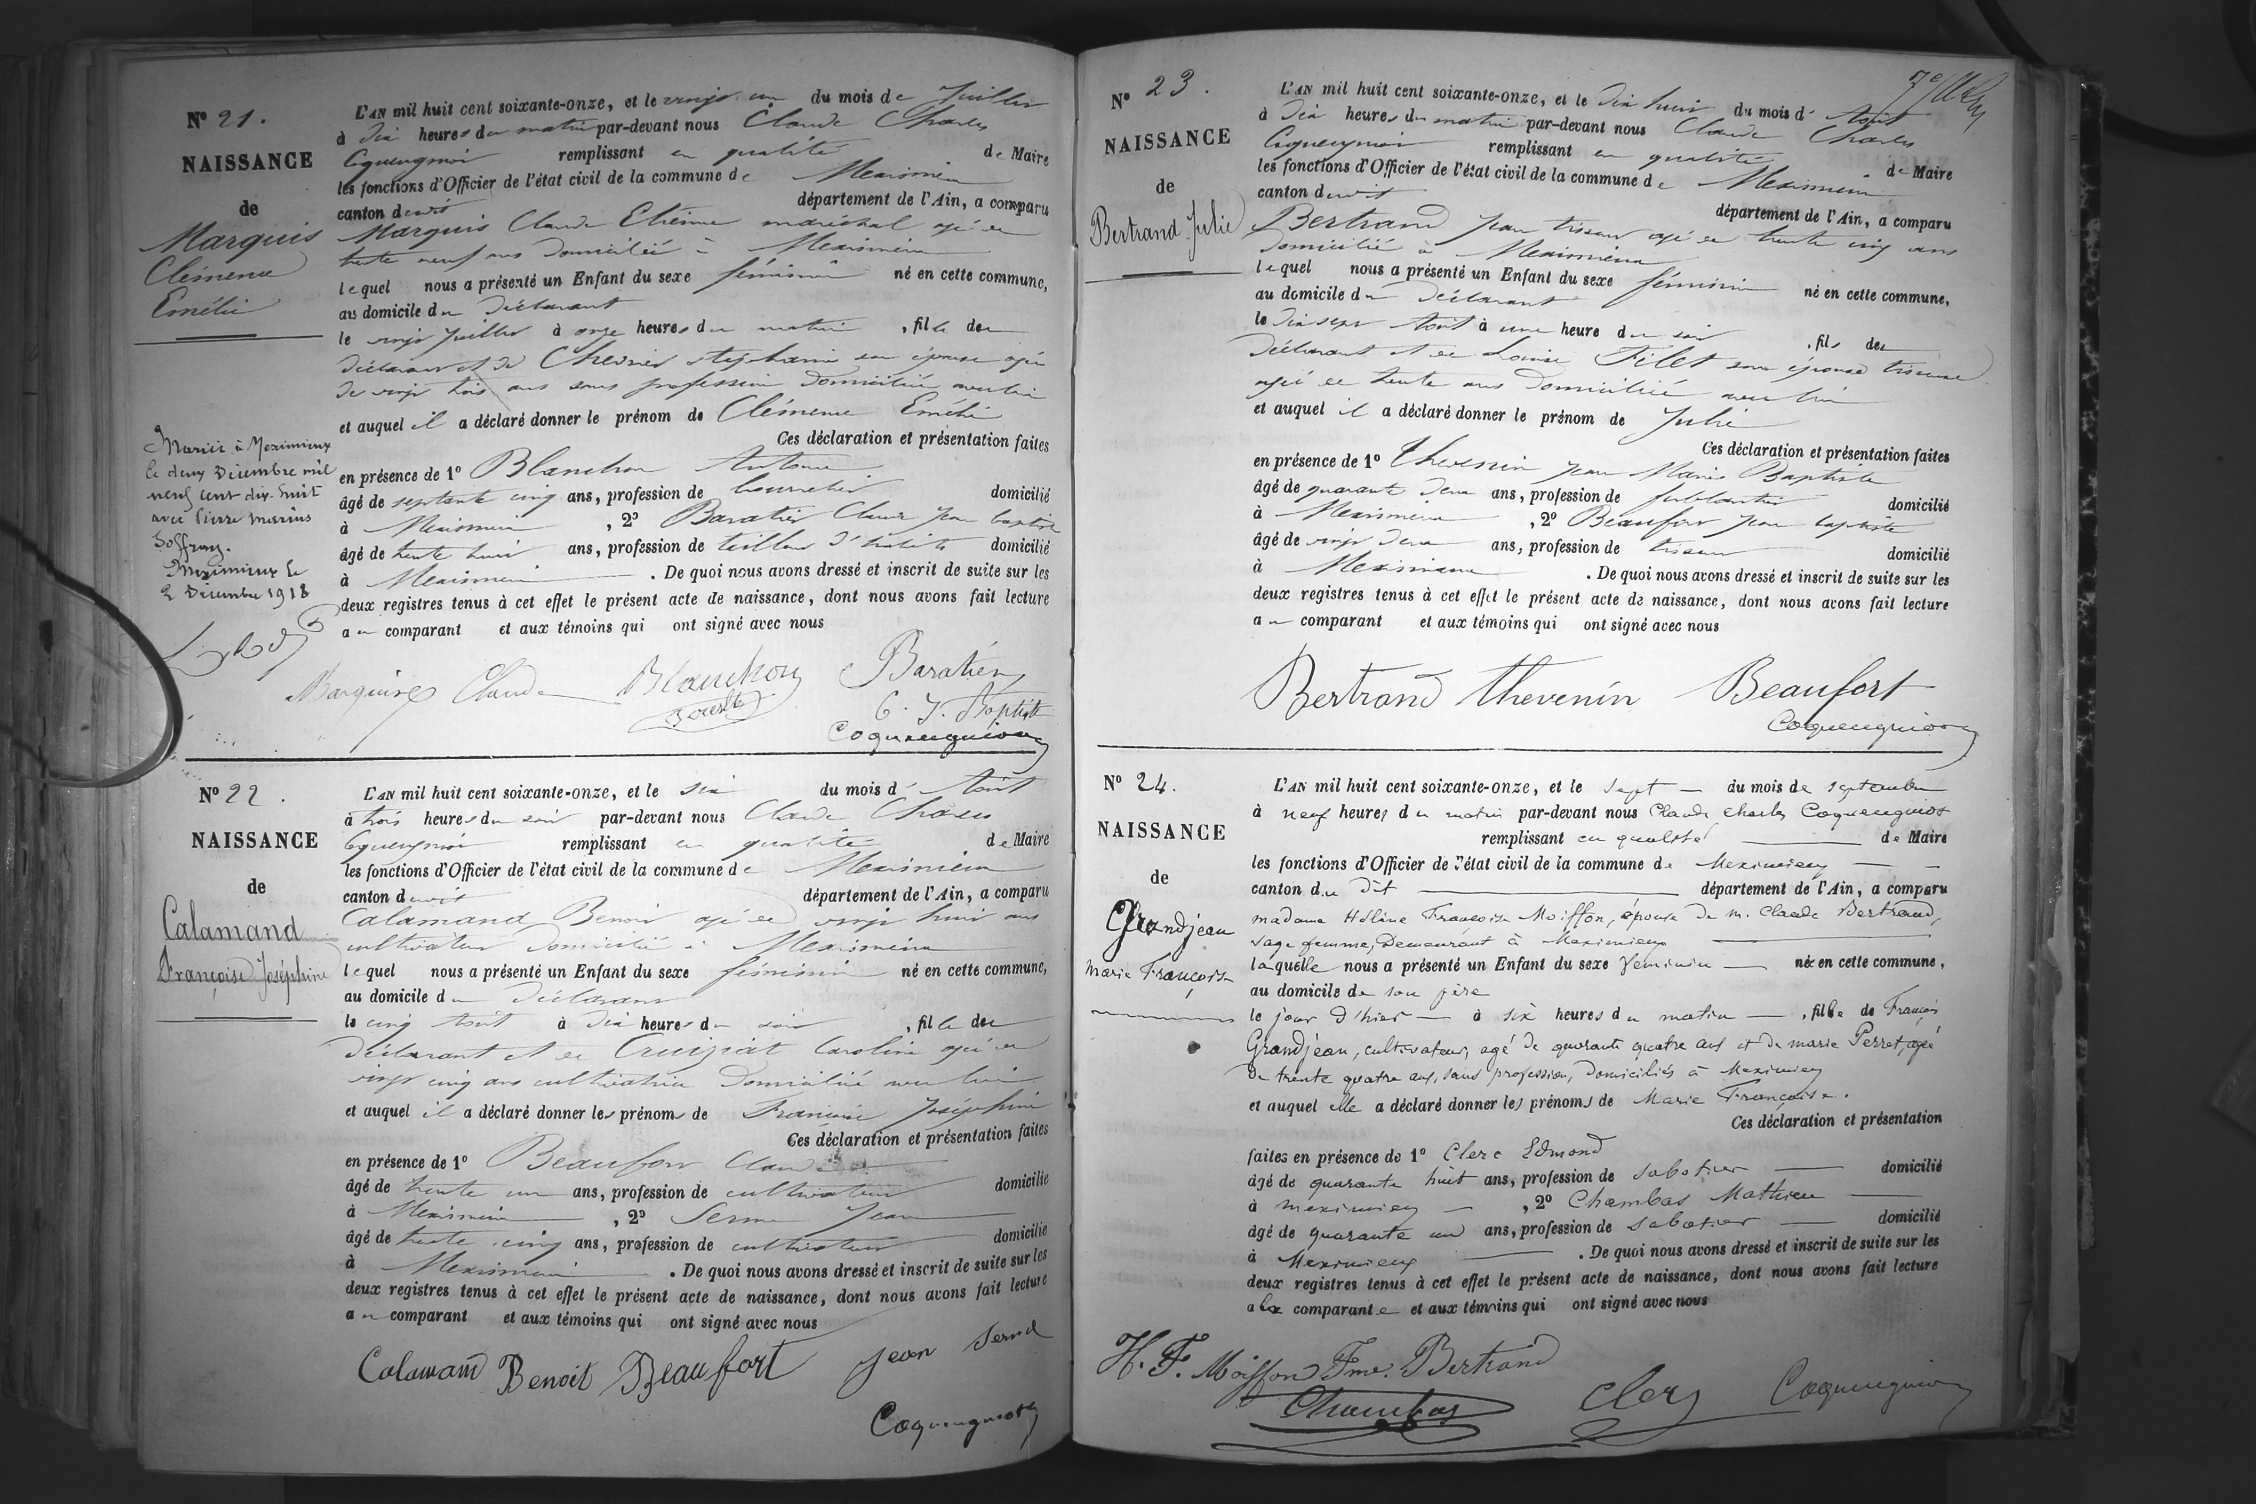 N° 21.
NAISSANCE
de
Marquis
Clémence
Emélie
L'AN mil huit cent soixante-onze, et le vingt un du mois de Juillet
à dix heures du matin par-devant nous Claude Charles
Coquengniot remplissant en qualité de Maire
les fonctions d'Officier de l'état civil de la commune de Meximieux
canton dudit département de l'Ain, a comparu
Marquis Claude Etienne maréchal agé de
trente neuf ans domicilié à Meximieux
lequel nous a présenté un Enfant du sexe féminin né en cette commune,
au domicile du Déclarant
le vingt juillet à onze heures du matin, fille du
Déclarant et de Chevrier stéphanie son épouse agée
de vingt trois ans sans profession domiciliée avec lui
et auquel il a déclaré donner le prénom de Clémence Emélie
Ces déclaration et présentation faites
en présence de 1° Blanchon Antoine
âgé de septante cinq ans, profession de bourrelier domicilié
à Meximieux, 2° Baratier Claude Jean baptiste
âgé de trente huit ans, profession de tailleur d'habits domicilié
à Meximieux. De quoi nous avons dressé et inscrit de suite sur les
deux registres tenus à cet effet le présent acte de naissance, dont nous avons fait lecture
au comparant et aux témoins qui ont signé avec nous
Mariée à Meximieux
le deux Décembre mil
neuf cent dix-huit
avec Pierre Marius
Soffray.
Meximieux le
2 Décembre 1918
Claude Blanchon Baratier
C. J. Baptiste
Coquengniot
N° 22.
NAISSANCE
de
Calamand
Françoise Joséphine
L'AN mil huit cent soixante-onze, et le six du mois d'Août
à trois heures du soir par-devant nous Claude Charles
Coquengniot remplissant en qualité de Maire
les fonctions d'Officier de l'état civil de la commune de Meximieux
canton dudit département de l'Ain, a comparu
Calamand Benoit agé de vingt huit ans
cultivateur domicilié à Meximieux
lequel nous a présenté un Enfant du sexe féminin né en cette commune,
au domicile du Déclarant
le cinq Août à dix heures du soir, fille du
Déclarant et de Cruiziat Caroline agée de
vingt cinq ans cultivatrice domiciliée avec lui
et auquel il a déclaré donner les prénoms de Françoise Joséphine
Ces déclaration et présentation faites
en présence de 1° Beaufort Claude
âgé de trente un ans, profession de cultivateur domicilié
à Meximieux, 2° Serme Jean
âgé de trente cinq ans, profession de cultivateur domicilié
à Meximieux. De quoi nous avons dressé et inscrit de suite sur les
deux registres tenus à cet effet le présent acte de naissance, dont nous avons fait lecture
au comparant et aux témoins qui ont signé avec nous
Calamand Benoit Beaufort Jean
Coquengniot
N° 23.
NAISSANCE
de
Bertrand Julie
L'AN mil huit cent soixante-onze, et le Dix huit du mois d'Août
à Dix heures du matin par-devant nous Claude Charles
Coquengniot remplissant en qualité de Maire
les fonctions d'Officier de l'état civil de la commune de Meximieux
canton dudit département de l'Ain, a comparu
Bertrand Jean tisseur agé de trente cinq ans
domicilié à Meximieux
lequel nous a présenté un Enfant du sexe féminin né en cette commune,
au domicile du Déclarant
le Dix sept Août à une heure du soir, fils du
Déclarant et de Louise Filet son épouse tisseuse
agée de trente ans domiciliée avec lui
et auquel il a déclaré donner le prénom de Julie
Ces déclaration et présentation faites
en présence de 1° Thevenin Jean Marie Baptiste
âgé de quarante deux ans, profession de ferblantier domicilié
à Meximieux, 2° Beaufort Jean baptiste
âgé de vingt deux ans, profession de tisseur domicilié
à Meximieux. De quoi nous avons dressé et inscrit de suite sur les
deux registres tenus à cet effet le présent acte de naissance, dont nous avons fait lecture
au comparant et aux témoins qui ont signé avec nous
Bertrand Thevenin Beaufort
Coquengniot
N° 24.
NAISSANCE
de
Grandjean
Marie Françoise
L'AN mil huit cent soixante-onze, et le sept du mois de septembre
à neuf heures du matin par-devant nous Claude Charles Coquengniot
remplissant en qualité de Maire
les fonctions d'Officier de l'état civil de la commune de Meximieux
canton du Dit département de l'Ain, a comparu
madame Hélène Françoise Moiffon, épouse de m. Claude Bertrand,
sage femme, Demeurant à Meximieux
laquelle nous a présenté un Enfant du sexe féminin née en cette commune,
au domicile de son père
le jour d'hier à six heures du matin, fille de François
Grandjean, cultivateur, agé de quarante quatre ans et de marie Perret, agée
de trente quatre ans, sans profession, Domiciliés à Meximieux
et auquel elle a déclaré donner les prénoms de Marie Françoise.
Ces déclaration et présentation
faites en présence de 1° Clerc Edmond
âgé de quarante huit ans, profession de sabotier domicilié
à meximieux, 2° Chambas Mathieu
âgé de quarante un ans, profession de sabotier domicilié
à Meximieux. De quoi nous avons dressé et inscrit de suite sur les
deux registres tenus à cet effet le présent acte de naissance, dont nous avons fait lecture
a la comparante et aux témoins qui ont signé avec nous
H. F. Moiffon Fme. Bertrand
Chambas Clerc Coquengniot